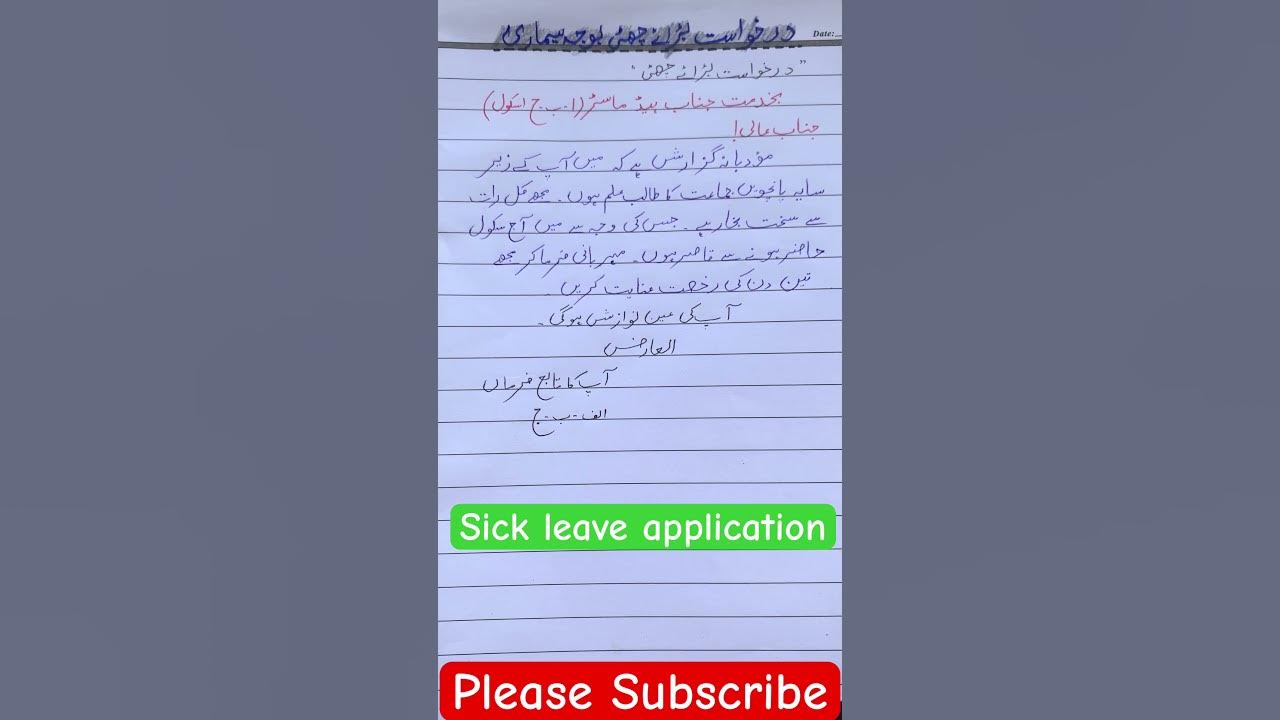 درخواست برائے چھٹی بوجہ بیماری
Date:
"درخواست برائے چھٹی"
بخدمت جناب ہیڈ ماسٹر (ا۔ب۔ج اسکول)
جناب عالی!
مؤدبانہ گزارش ہے کہ میں آپ کے زیر
سایہ پانچویں جماعت کا طالب علم ہوں۔ مجھے کل رات
سے سخت بخار ہے۔ جس کی وجہ سے میں آج سکول
حاضر ہونے سے قاصر ہوں۔ مہربانی فرما کر مجھے
تین دن کی رخصت عنایت کریں۔
آپ کی عین نوازش ہوگی۔
العارض
آپ کا تابع فرماں
الف-ب-ج
Sick leave application
Please Subscribe